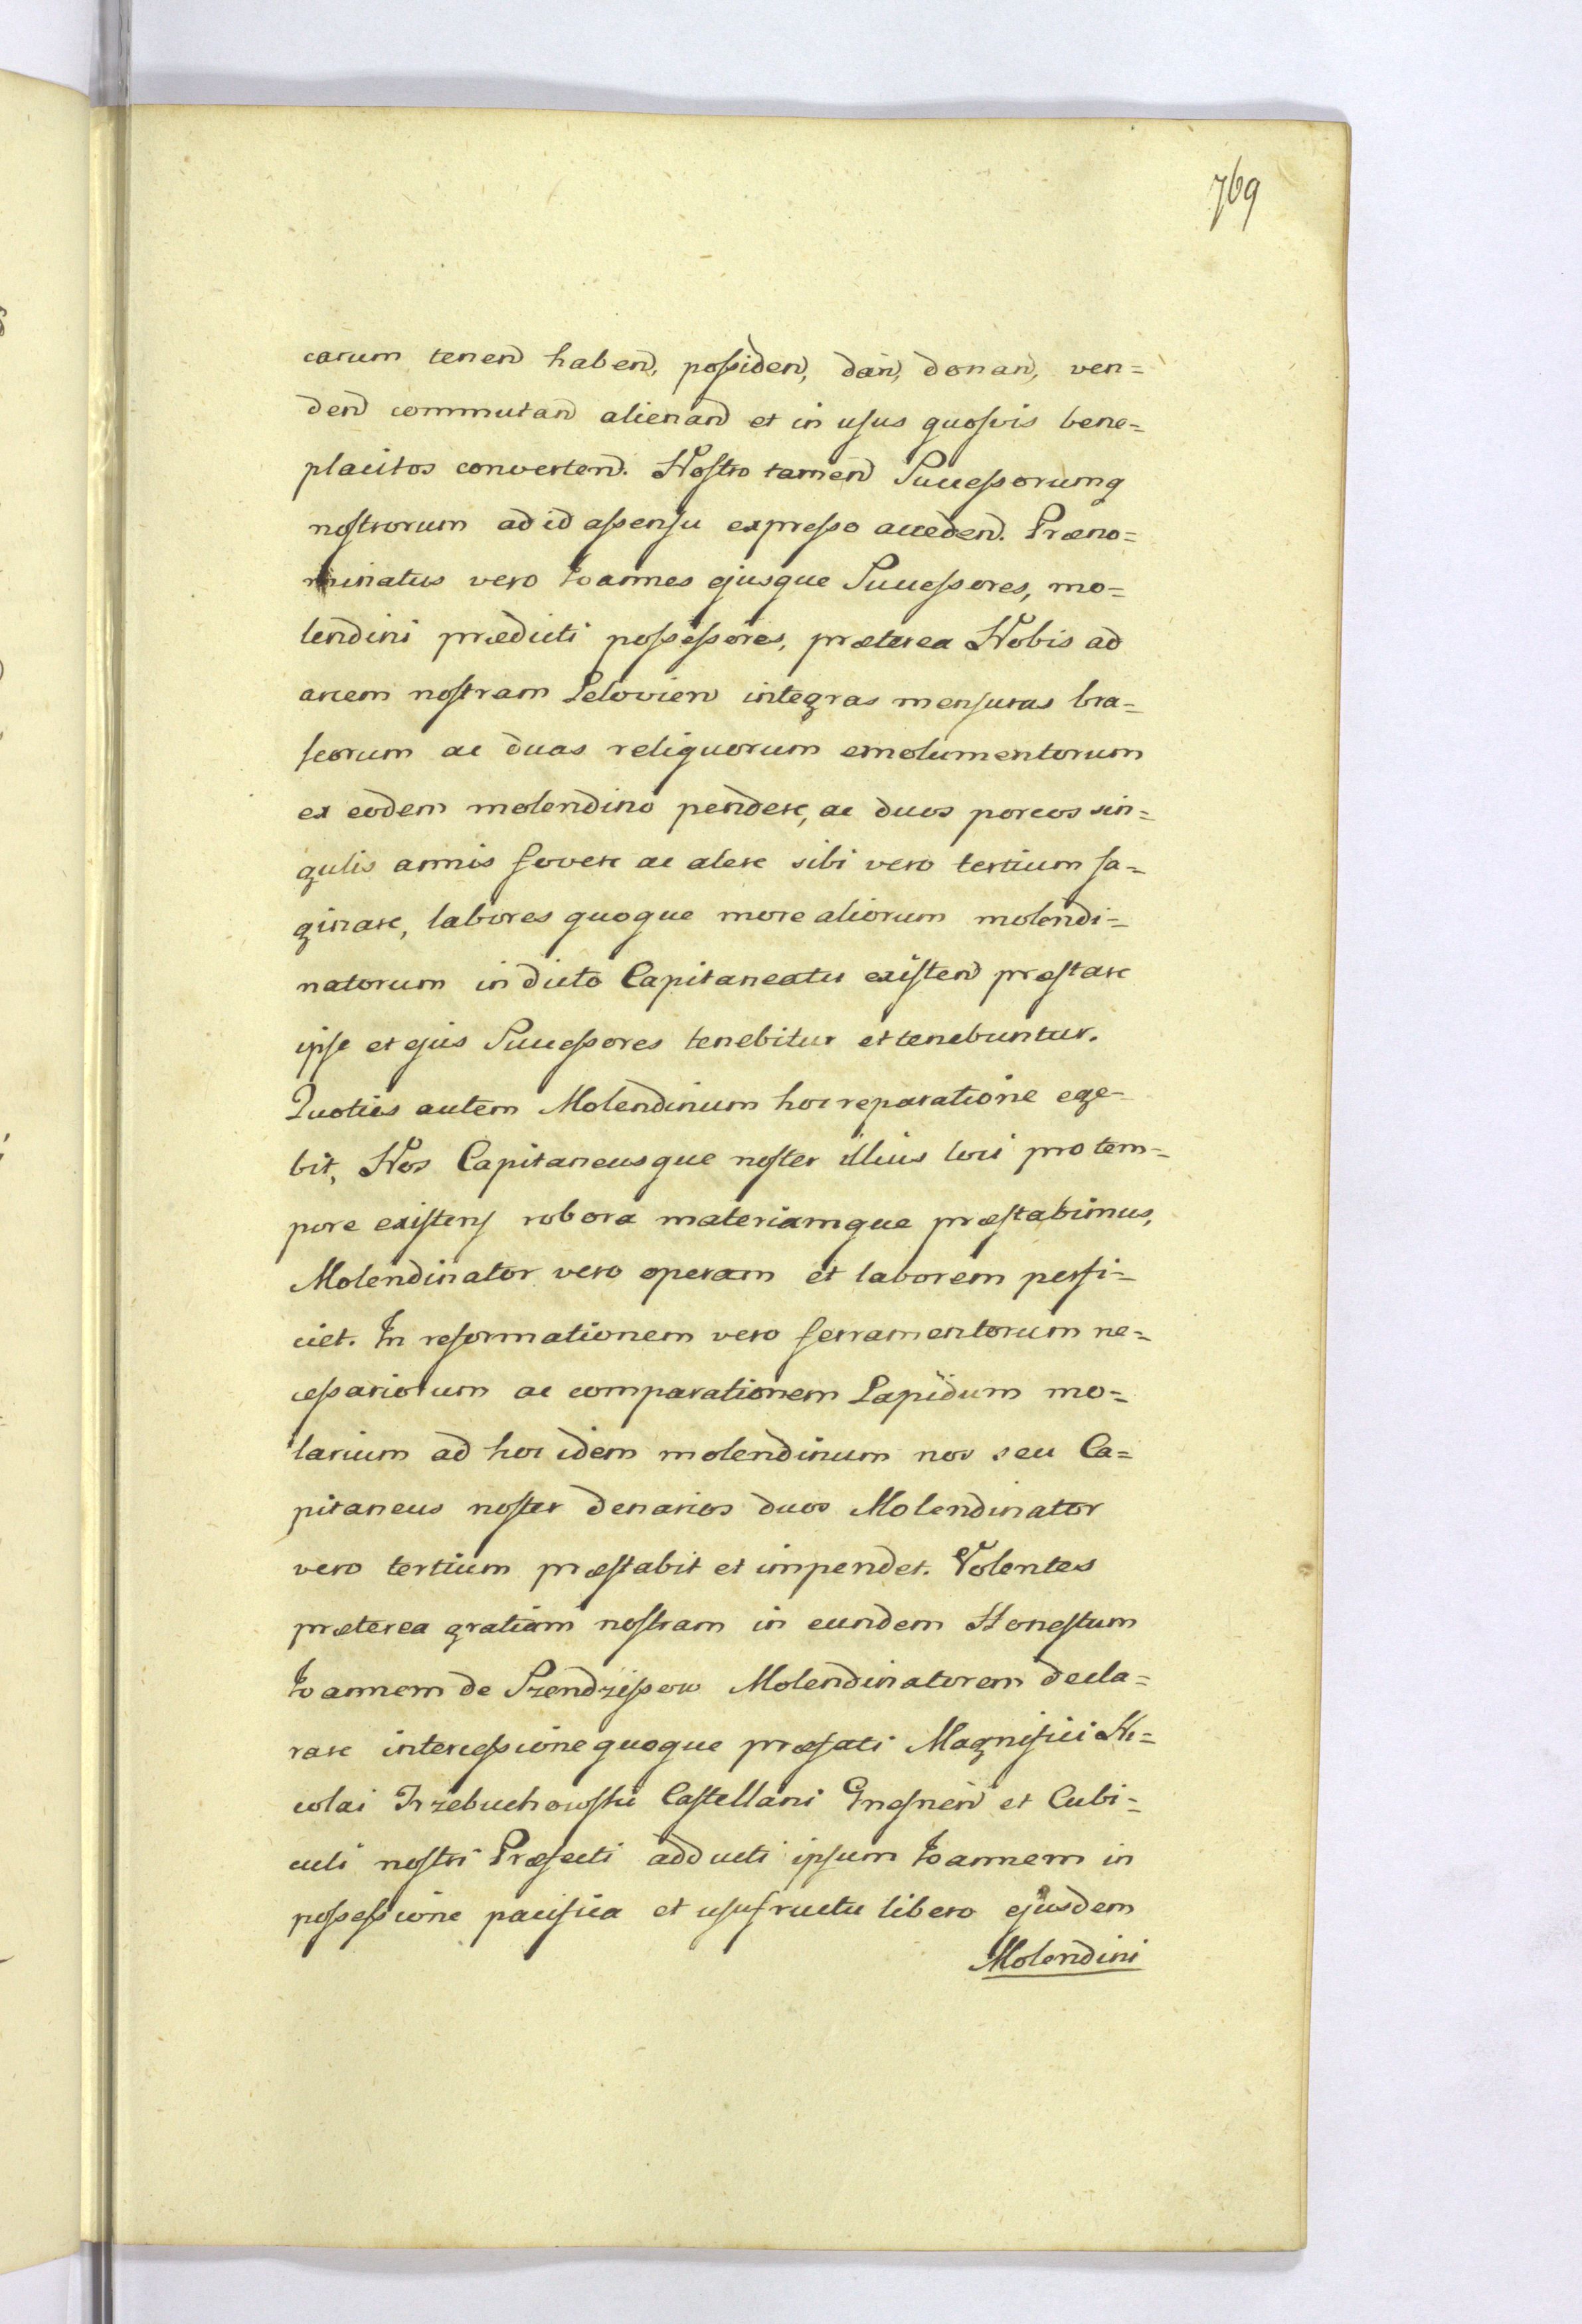 769
carum tenen̄ haben̄, poſsiden̄, dan̄, donan̄, ven=
den̄ commutan̄ alienan̄ et in uſus quoſvis bene=
placitos converten̄. Noſtro tamen̄ Succeſsorumq
noſtrorum ad id aſsenſu expreſso acceden̄. Præno=
minatus vero Ioannes ejusque Succeſsores, mo=
lendini prædicti poſseſsores, præterea Nobis ad
arcem noſtram Lelovien̄ integras menſuras bra=
ſeorum ac duas reliquorum emolumentorum
ex eodem molendino pendere, ac duos porcos sin=
gulis annis fovere ac alere sibi vero tertium ſa=
ginare, labores quoque more aliorum molendi=
natorum in dicto Capitaneatu exiſten̄ præſtare
ipſe et ejus Succeſsores tenebitur et tenebuntur.
Quoties autem Molendinum hoc reparatione ege=
bit, Nos Capitaneusque noſter illius loci pro tem=
pore exiſtenſ robora materiamque præſtabimus,
Molendinator vero operam et laborem perfi=
ciet. In reformationem vero ferramentorum ne=
ceſsariorum ac comparationem Lapidum mo=
larium ad hoc idem molendinum nos seu Ca=
pitaneus noſter denarios duos Molendinator
vero tertium præſtabit et impendet. Volentes
præterea gratiam noſtram in eundem Honeſtum
Ioannem de Srzendziſsow Molendinatorem decla=
rare interceſsione quoque præfati Magnifici Ni=
colai Trzebuchowſki Caſtellani Gneſnen̄ et Cubi=
culi noſtri Præfecti adducti ipſum Ioannem in
poſseſsione pacifica et uſufructu libero ejusdem
Molendini